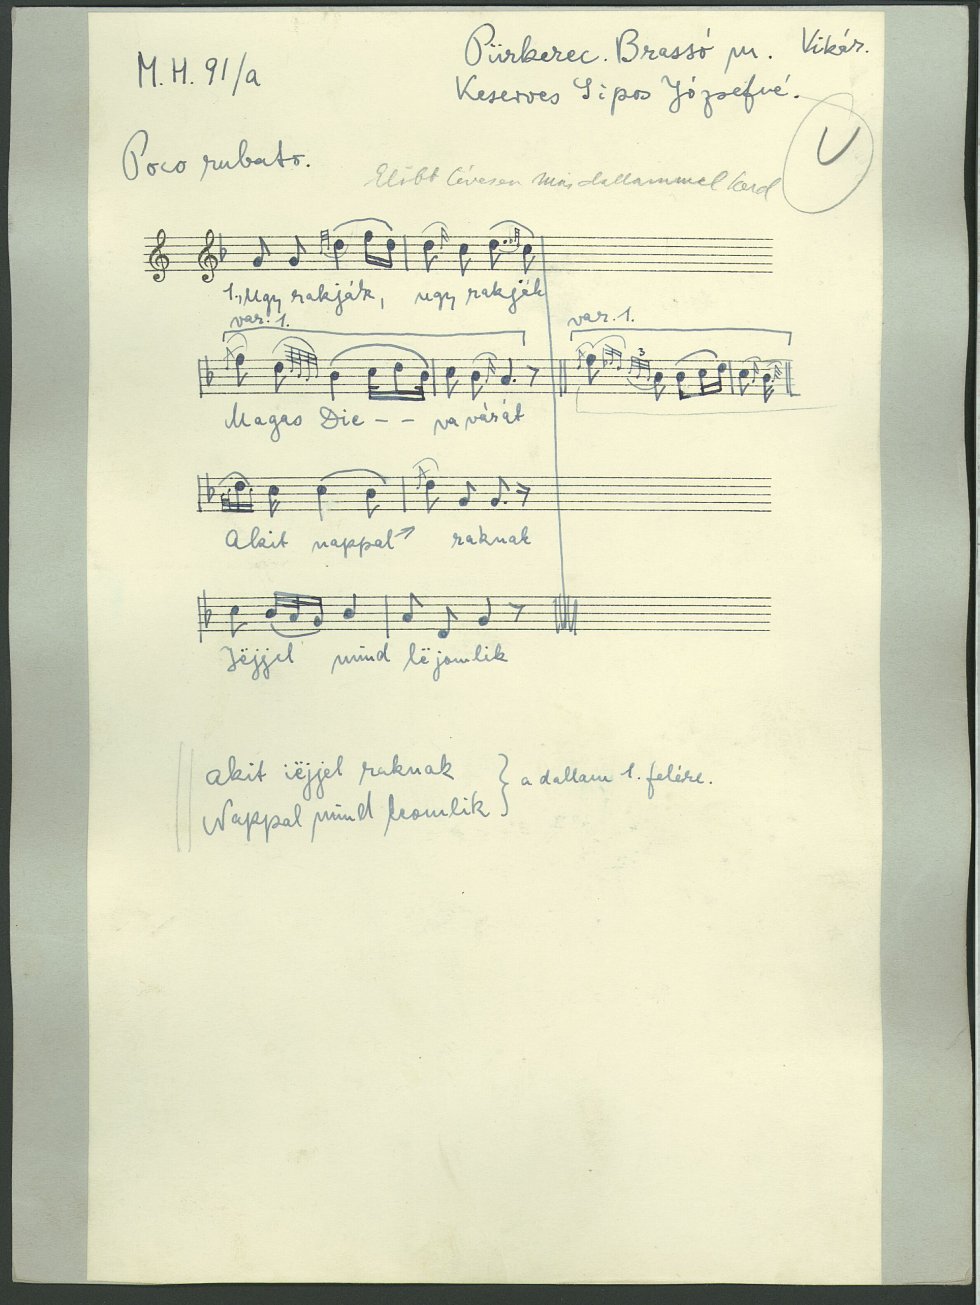 M.H. 91/a
Pürkerec. Brassó m. Vikár.
Keserves Sipos Józsefné.
Poco rubato.
Előbb tévesen más dallammal kezd
1., Ugy rakják, ugy rakják
var. 1.
var. 1.
3
Magas Die - - va várát
Akit nappal raknak
Iëjjel mind lëjomlik
akit iëjjel raknak
Nappal mind leomlik } a dallam 1. felére.